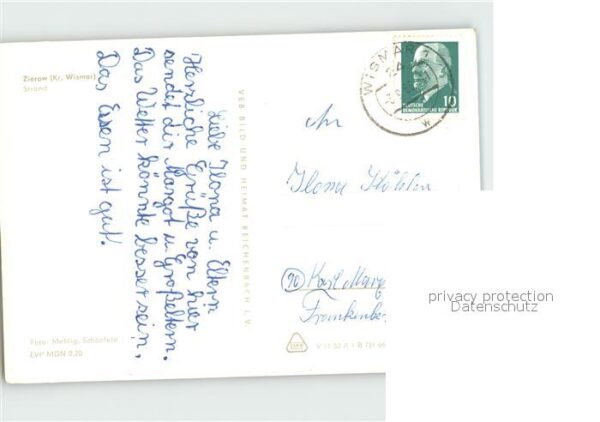 Zierow (Kr. Wismar)
Strand
Liebe Ilona u. Eltern
Herzliche Grüße von hier
sendet dir Margot u. Großeltern.
Das Wetter könnte besser sein,
Das Essen ist gut.
VEB BILD UND HEIMAT REICHENBACH I. V.
WISMAR 1
24
10
DEUTSCHE
DEMOKRATISCHE REPUBLIK
An
Ilona
90 Karl Marx
Frankenbe
privacy protection
Datenschutz
Foto: Mehlig, Schönfeld
EVP MDN 0,20